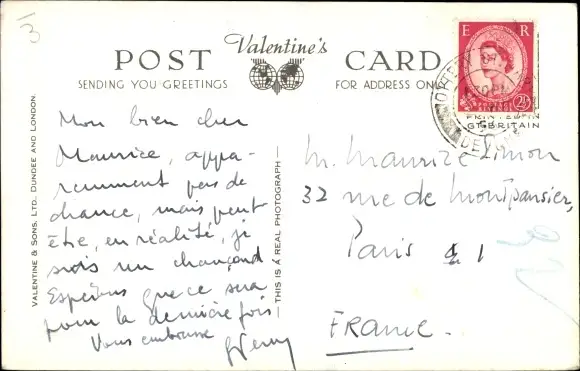 3
POST Valentine's CARD
SENDING YOU GREETINGS
FOR ADDRESS ONLY
E R
2½
PRINTED IN
GT. BRITAIN
VALENTINE & SONS, LTD. DUNDEE AND LONDON.
THIS IS A REAL PHOTOGRAPH
Mon bien cher
Maurice, appa-
remment pas de
chance, mais peut
être, en réalité, je
suis un chançard
Espérons que ce sera
pour la dernière fois
Vous embrasse
M. Maurice Limon
32 rue de Montpensier,
Paris 1
FRANCE.